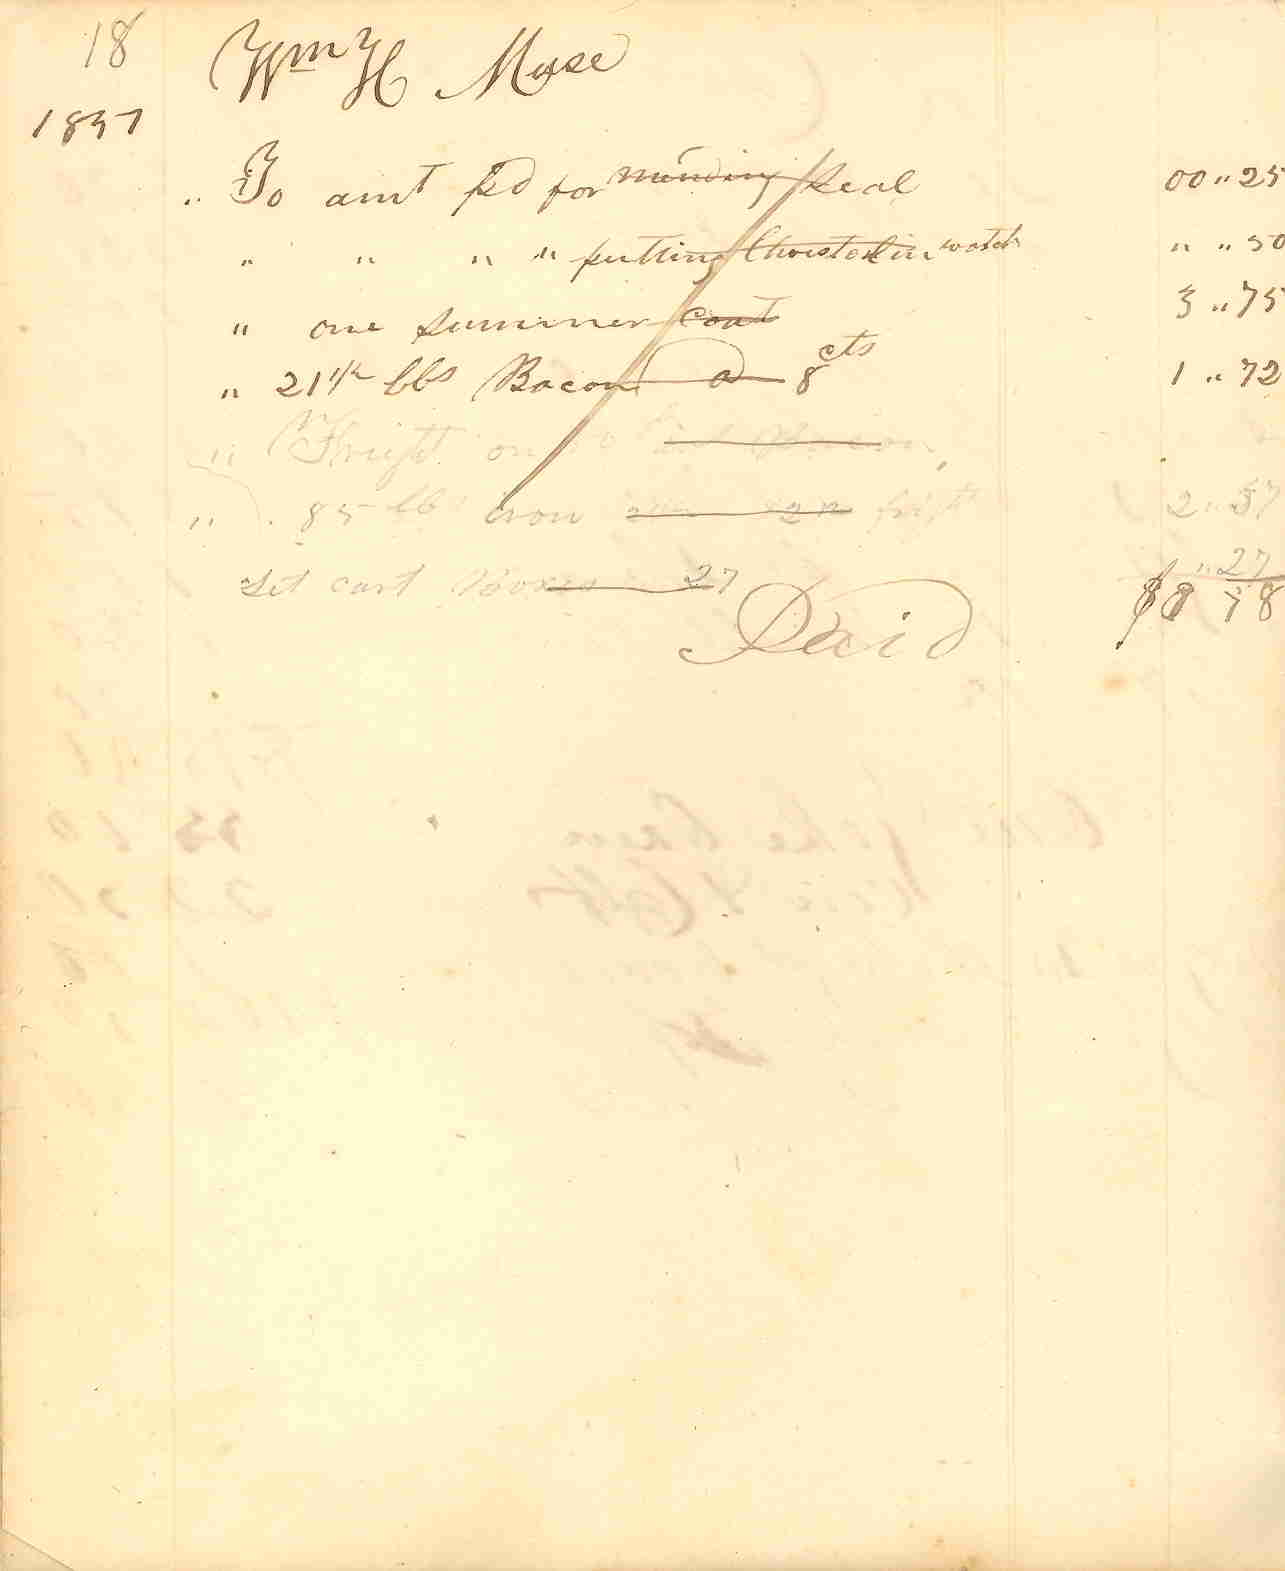 18
Wm H Muse
1857
" To amt pd for mending seal 00 " 25
" " " " putting Christol in watch " " 50
" one summer coat 3 " 75
" 21 1/2 lbs Bacon a 8 cts 1 " 72
" Freight on
" 85 lbs iron 2 " 37
Set cart Boxes 27 " 27
Paid $8 78